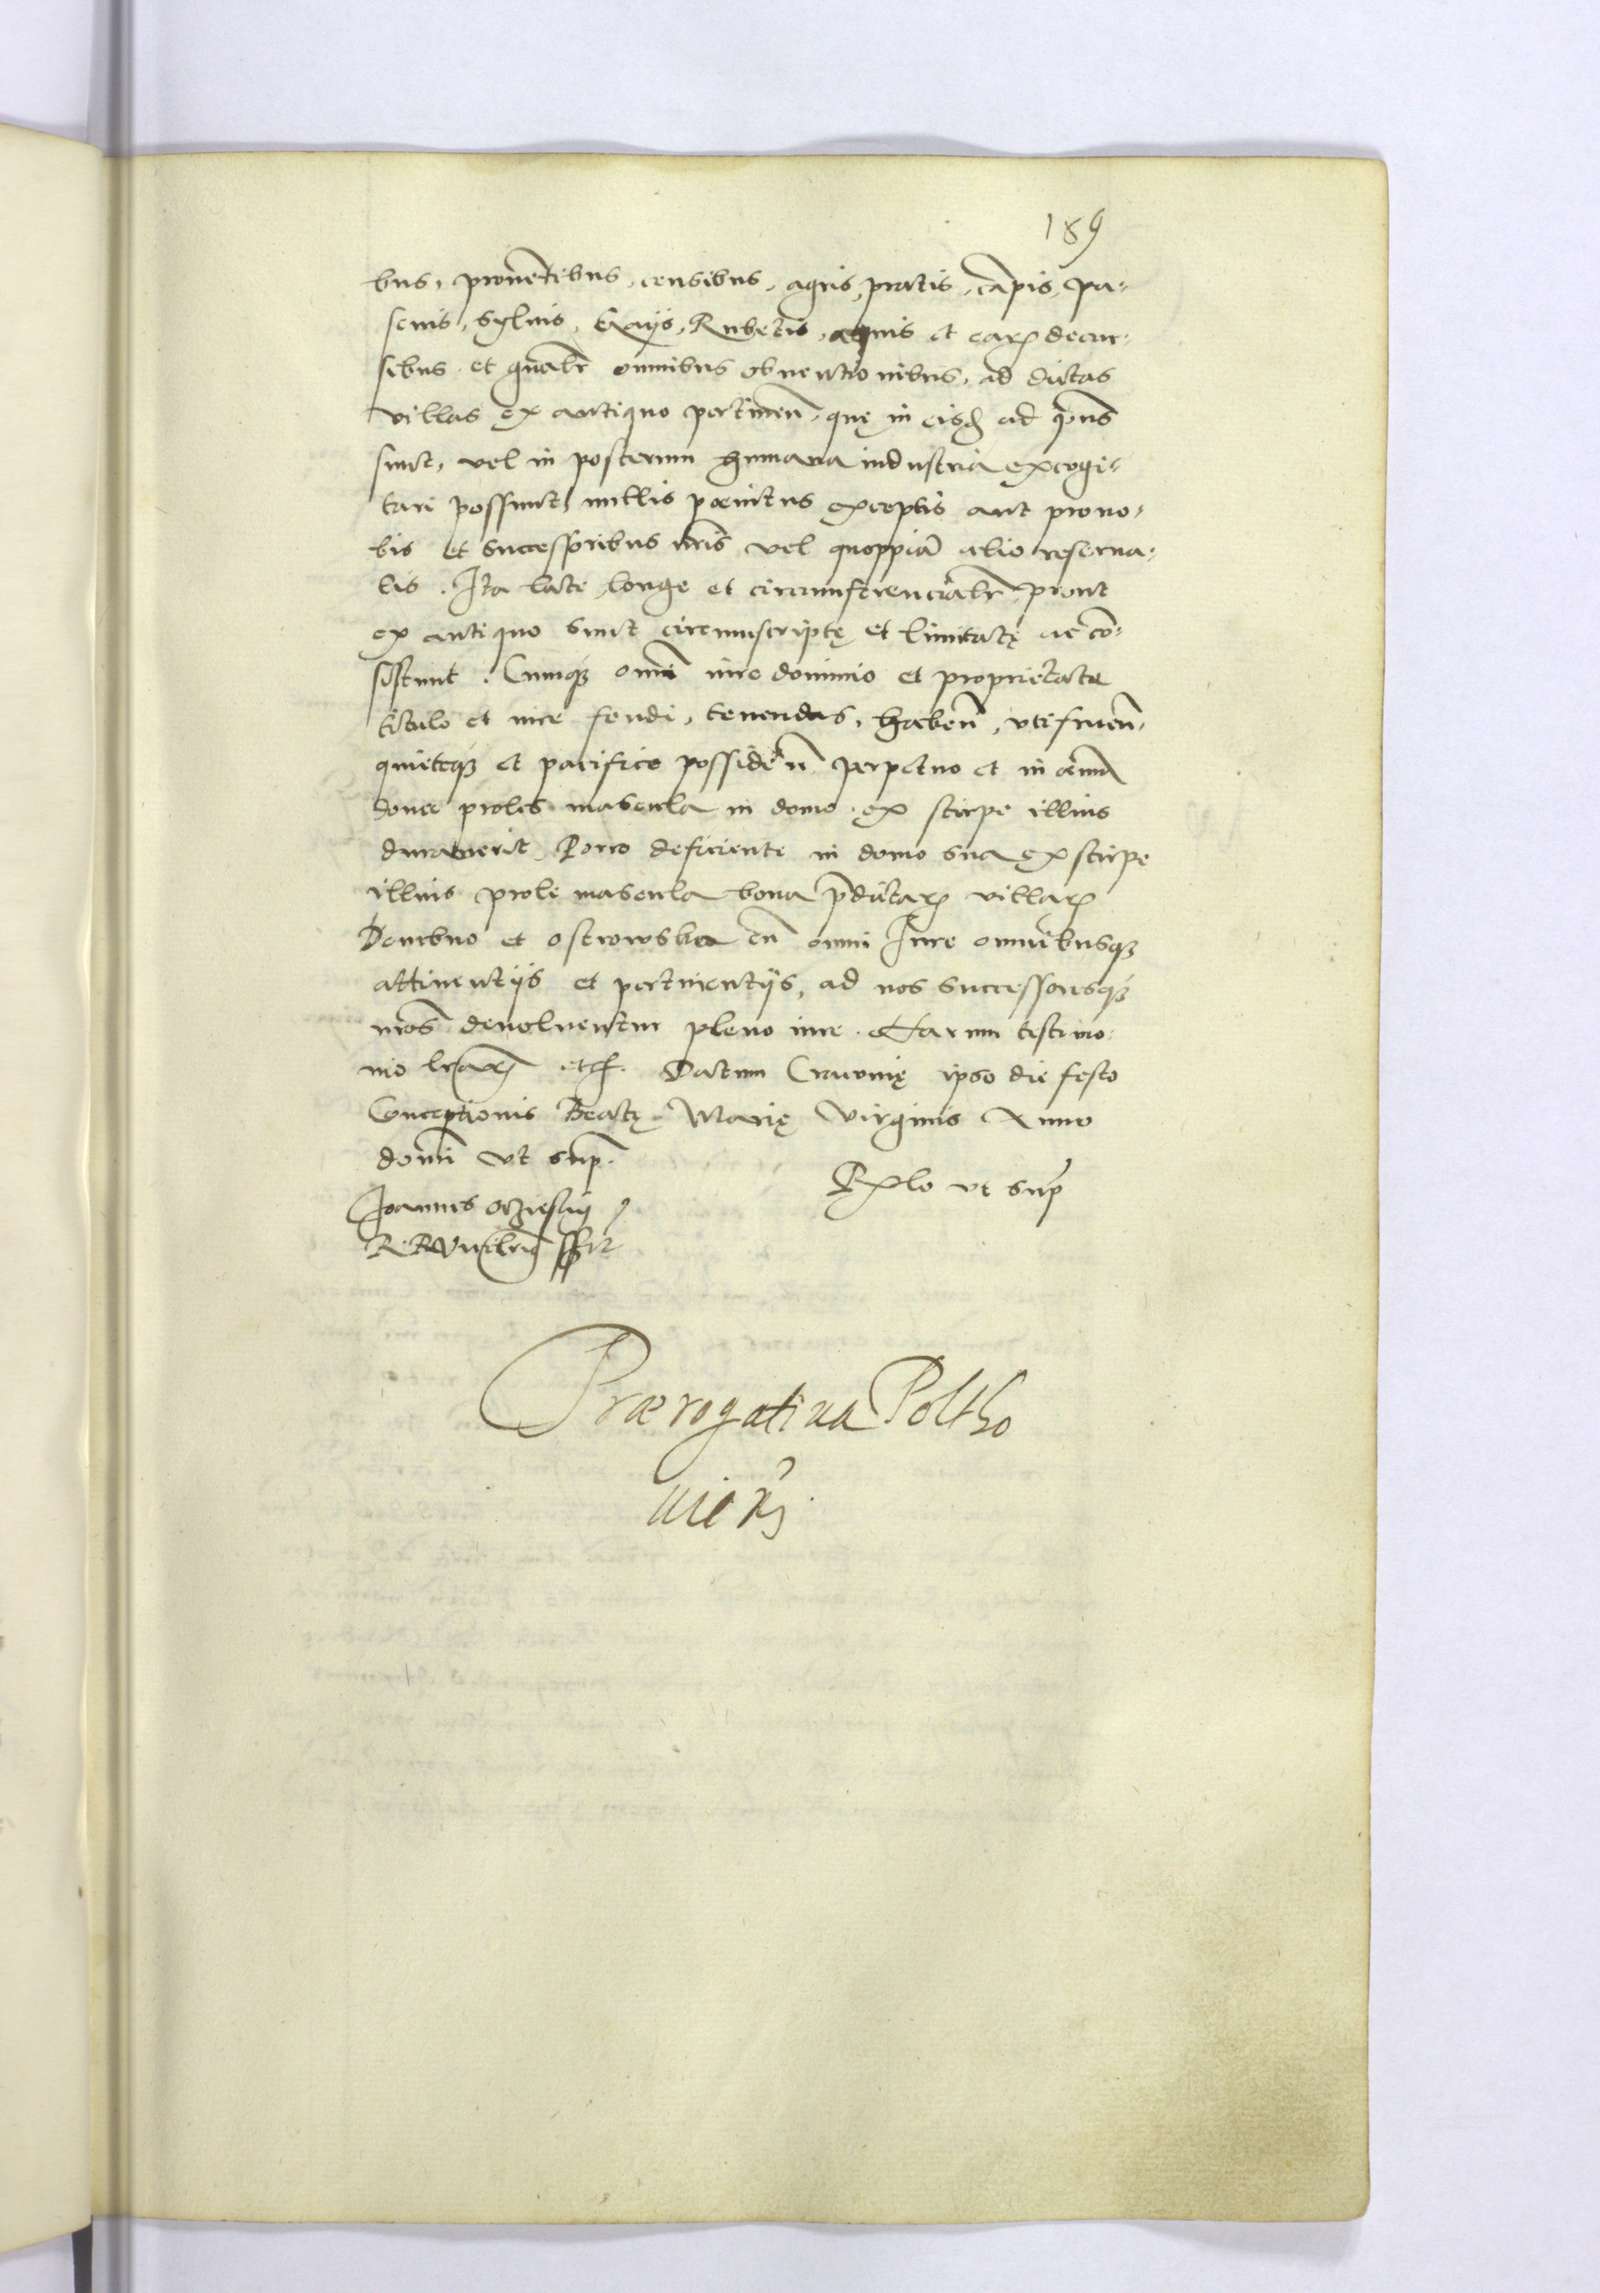 189
bus, prouētibus, censibus, agris, pratis, cāpis, pa-
scuis, syluis, Gaijs, Rubetis, aquis et earꝝ decur-
sibus. et gñalr̄ omnibus obuentionibus, ad dictas
villas ex antiquo pertinen̄. quę in eisꝺ ad pr̄ns
sunt, vel in posterum humana industria excogi-
tari possunt, nullis poenitus exceptis aut pro no-
bis et successoribus nr̄is vel quoppiā alio reserua-
tis. Ita late, longe et circumferencialr̄, prout
ex antiquo sunt circumscriptę et limitatę ac cō-
sistunt. Cumqꝫ omī iure dominio et proprietate
titulo et iure feudi, tenendas, haben̄, vtifruen̄.
quieteqꝫ et pacifice possiden̄ perpetuo et in æuū
donec proles mascula in domo ex stirpe illius
durauerit. Porro deficiente in domo sua ex stirpe
illius prole mascula bona p̄dictarꝝ villarꝝ
Dembno et Ostrowska cū omni Iure omnibusqꝫ
attinentijs et pertinentijs, ad nos successoresqꝫ
nr̄os deuoluentur pleno iure. Harum testimo-
nio lr̄arꝝ etc. Datum Cracouię ipso die festo
Conceptionis Beatę Marię Virginis Anno
domī vt sup̄.
Rx̄lo vt sup̄
Joannes Oczieski
R. P. Vicecancellarius sst
Prærogatiua Poltho
uien̄